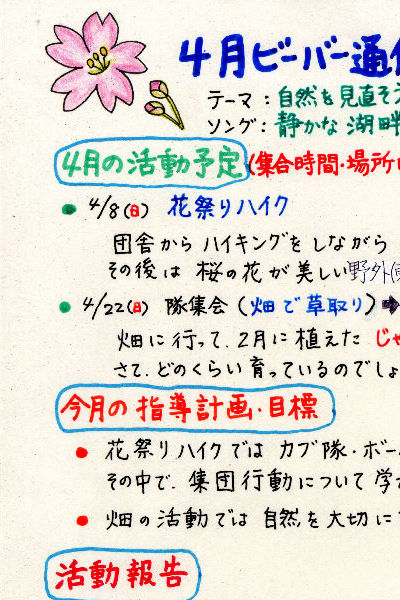 4月ビーバー通信
テーマ：自然を見直そう
ソング：静かな湖畔
4月の活動予定(集合時間・場所
4/8(日) 花祭りハイク
団舎から ハイキングを しながら
その後は 桜の花が美しい野外
4/22(日) 隊集会 (畑で草取り)➡
畑に行って、2月に植えた じゃ
さて、どのくらい育っているのでしょ
今月の指導計画・目標
花祭りハイクでは カブ隊・ボー
その中で、集団行動について学
畑の活動では 自然を大切に
活動報告